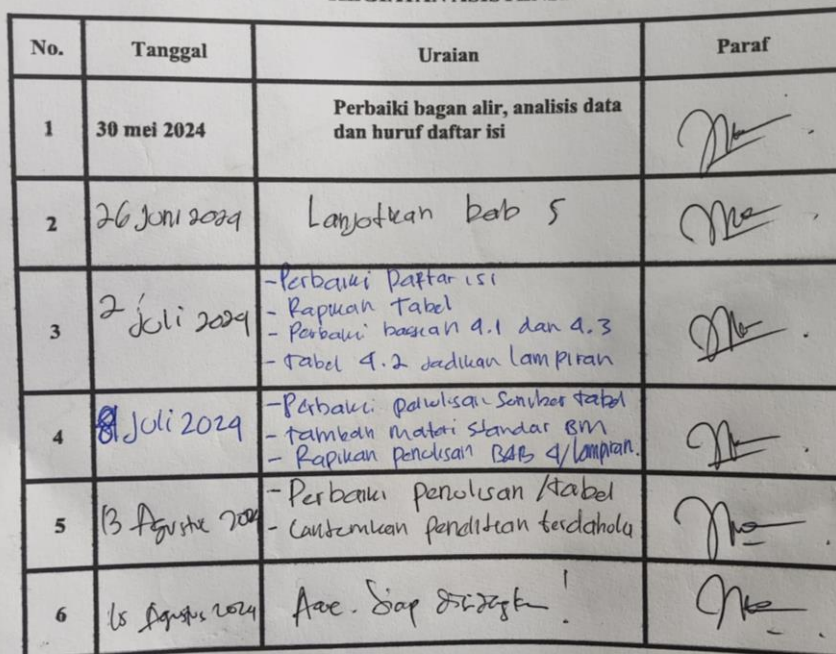 No. Tanggal Uraian Paraf
1 30 mei 2024 Perbaiki bagan alir, analisis data
dan huruf daftar isi
2 26 Juni 2024 Lanjutkan bab 5
3 2 Juli 2024 - Perbaiki Daftar isi
- Rapikan Tabel
- Perbaiki bagian 4.1 dan 4.3
- Tabel 4.2 Jadikan lampiran
4 8 Juli 2024 - Perbaiki penulisan Sumber tabel
- tambah Materi Standar BM
- Rapikan penulisan BAB 4/lampiran.
5 13 Agustus 2024 - Perbaiki penulisan /tabel
- Cantumkan penelitian terdahulu
6 Agustus 2024 Siap !